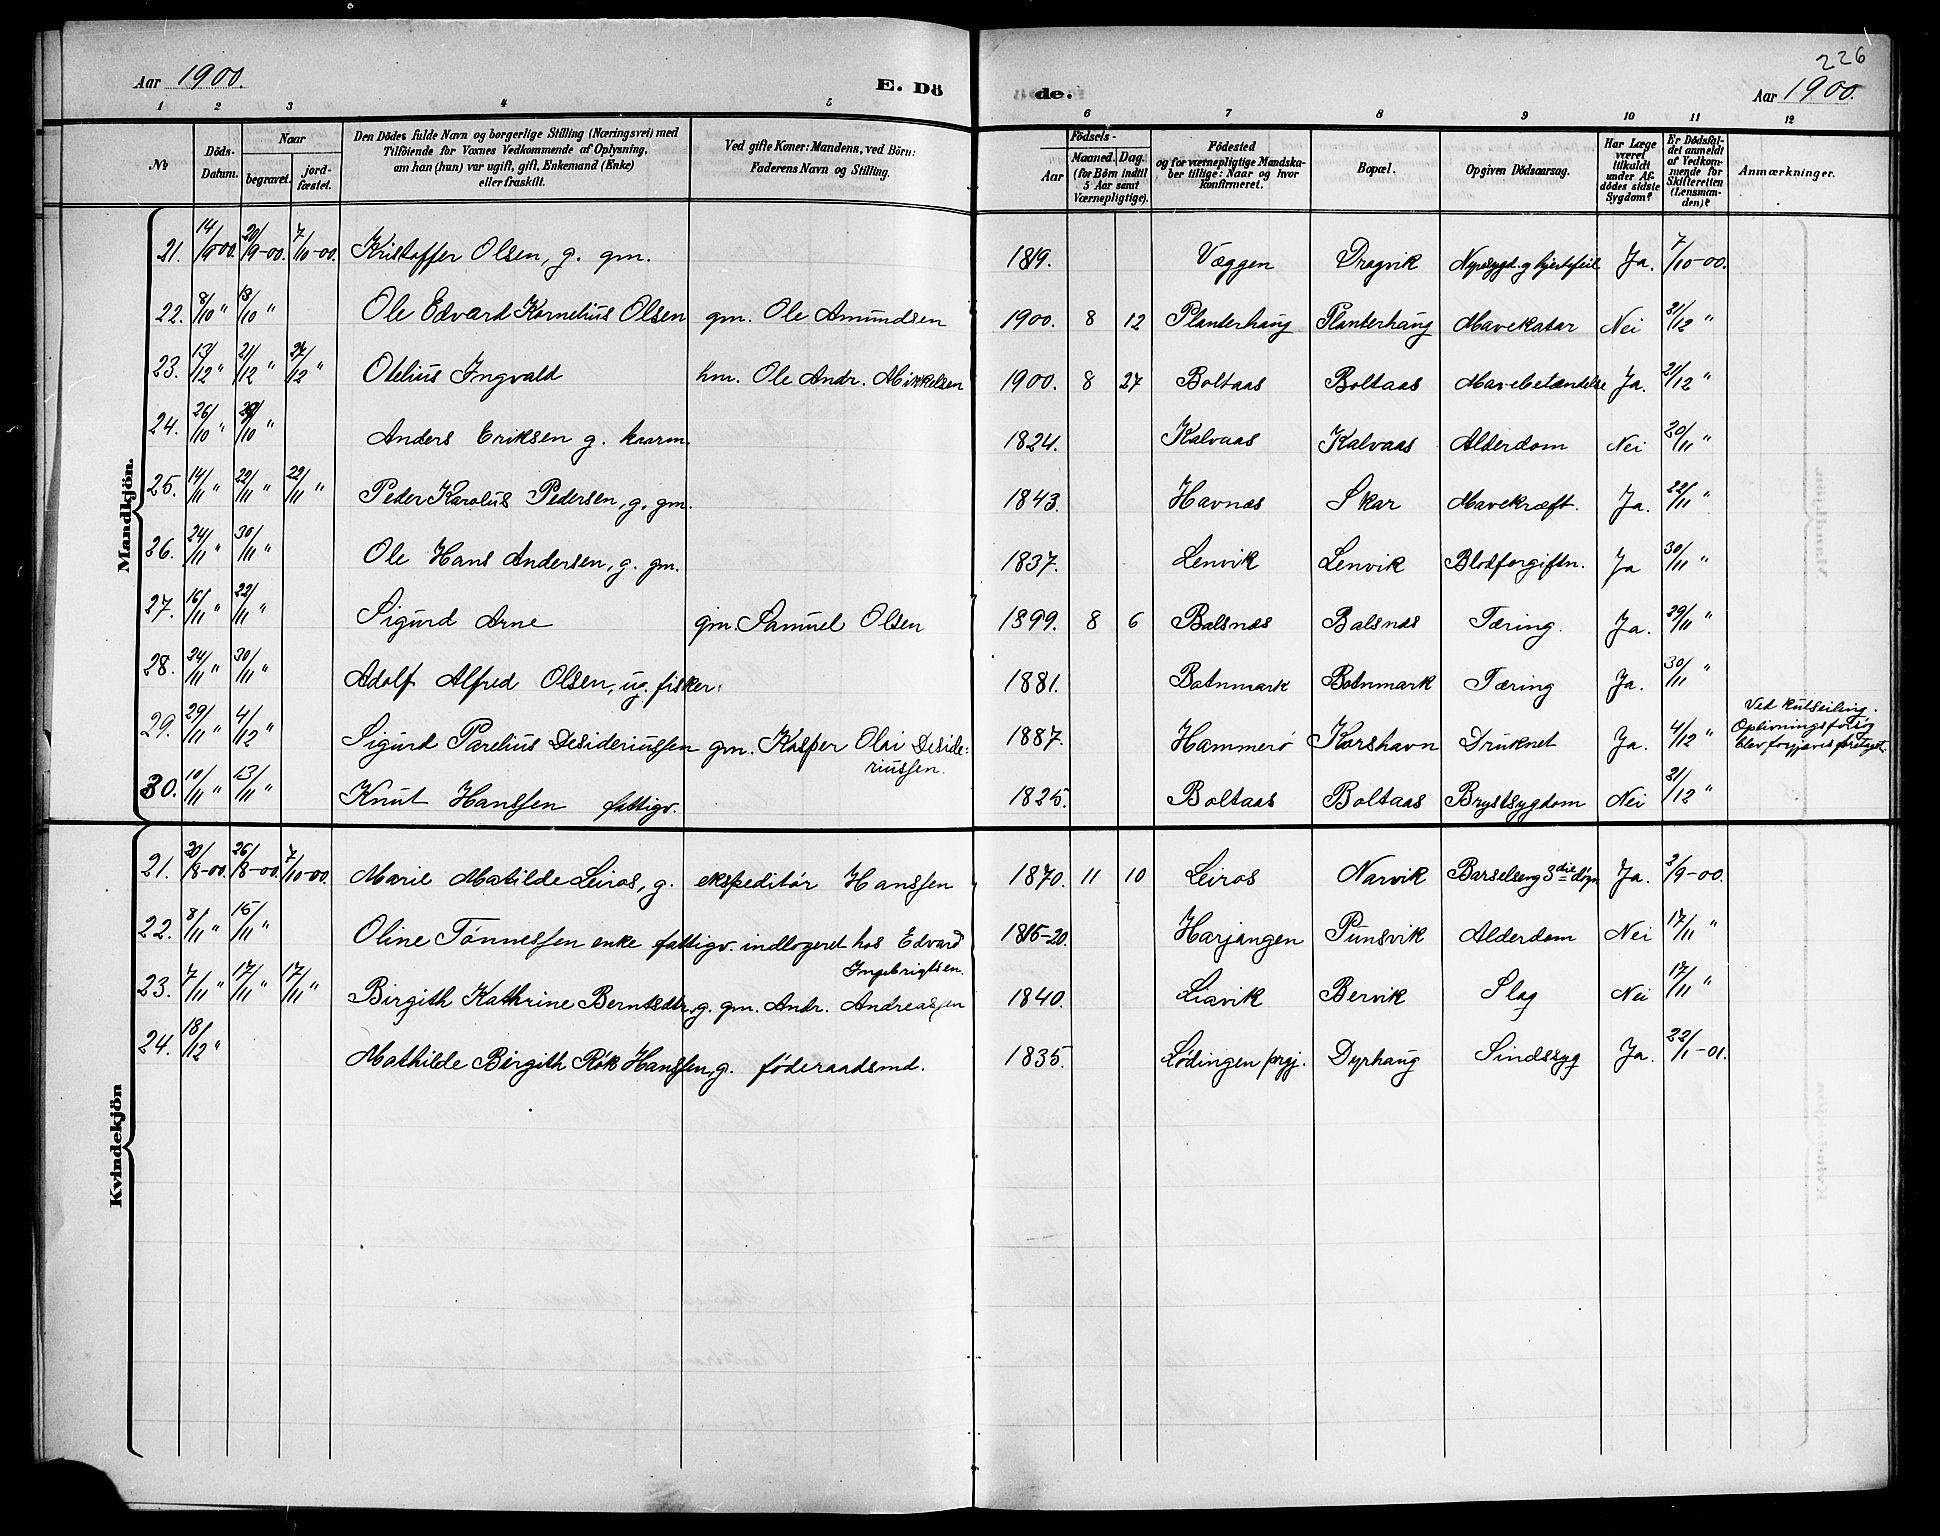 226
Aar 1900. E. Dö de. Aar 1900.
1 2 3 4 5 6 7 8 9 10 11 12
№ Döds-Datum. Naar begravet. jordfæstet. Den Dödes fulde Navn og borgerlige Stilling (Næringsvei) med Tilföiende for Voxnes Vedkommende af Oplysning, om han (hun) var ugift, gift, Enkemand (Enke) eller fraskilt. Ved gifte Koner: Mandens, ved Börn: Faderens Navn og Stilling. Födsels- Aar Maaned. Dag. (for Börn indtil 5 Aar samt Værnepligtige). Födested og for værnepligtige Mandskaber tillige: Naar og hvor konfirmeret. Bopæl. Opgiven Dödsaarsag. Har Læge været tilkaldt under Afdödes sidste Sygdom? Er Dödsfaldet anmeldt af Vedkommende for Skifteretten (Lensmanden)? Anmærkninger.
Mandkjön.
21. 14/9-00 20/9-00. 7/10-00. Kristoffer Olsen, g. gm. 1819. Væggen Dragvik Nyresygd. og hjertefeil Ja. 7/10-00.
22. 8/10 " 13/10 " Ole Edvard Kornelius Olsen gm. Ole Amundsen 1900. 8 12 Planterhaug Planterhaug Mavekatar Nei 21/12 "
23. 13/12 " 21/12 " 27/12 " Otelius Ingvald hm. Ole Andr. Mikkelsen 1900. 8 27 Boltaas Boltaas Mavebetændelse Ja. 21/12 "
24. 26/10 " 29/10 " Anders Eriksen g. kaarm. 1824. Kalvaas Kalvaas Alderdom Nei 20/11 "
25. 14/11 " 22/11 " 22/11 " Peder Karolus Pedersen, g. gm. 1843. Havnæs Skar Mavekræft. Ja. 22/11 "
26. 24/11 " 30/11 " Ole Hans Andersen, g. gm. 1837. Lenvik Lenvik Blodforgiftn. Ja 30/11 "
27. 16/11 " 22/11 " Sigurd Arne gm. Samuel Olsen 1899. 8 6 Balsnæs Balsnæs Tæring. Ja. 29/11 "
28. 24/11 " 30/11 " Adolf Alfred Olsen, ug. fisker. 1881. Botnmark Botnmark Tæring Ja. 30/11 "
29. 29/11 " 4/12 " Sigurd Parelius Desideriussen gm. Kasper Olai Deside-
riussen. 1887. Hammerø Korshavn Druknet Ja. 4/12 " Ved kutseiling. Oplivningsforsøg blev forgjæves foretaget.
30. 10/11 " 13/11 " Knut Hanssen fattigv. 1825. Boltaas Boltaas Brystsygdom Nei 21/12 "
Kvindekjön
21. 20/8-00. 26/8-00. 7/10-00. Marie Matilde Leiros, g. ekspeditør Hanssen 1870. 11 10 Leiros Narvik Barselseng 3die døgn Ja. 2/9-00.
22. 8/11 " 15/11 " Oline Tønnessen enke fattigv. indlogeret hos Edvard
Ingebrigtsen. 1815-20. Harjangen Punsvik Alderdom Nei 17/11 "
23. 7/11 " 17/11 " 17/11 " Birgith Kathrine Berntsdtr, g. gm. Andr. Andreassen 1840. Liavik Bervik Slag Nei 17/11 "
24. 18/12 " Mathilde Birgith Røk Hanssen, g. føderaadsmd. 1835. Lødingen prgj. Dyrhaug Sindssyg Ja. 22/1-01.